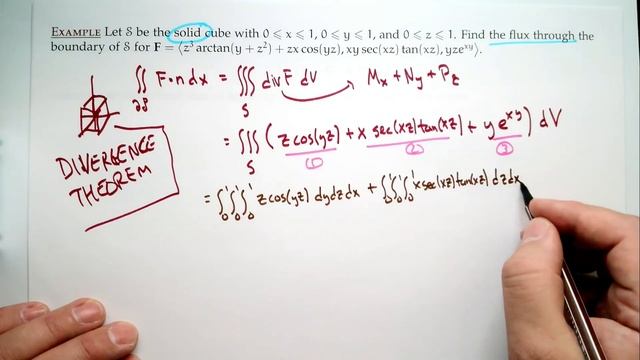 EXAMPLE Let S be the solid cube with 0 ⩽ x ⩽ 1, 0 ⩽ y ⩽ 1, and 0 ⩽ z ⩽ 1. Find the flux through the
boundary of S for F = ⟨z³ arctan(y + z²) + zx cos(yz), xy sec(xz) tan(xz), yze^{xy}⟩.
∬_{∂S} F·n dx = ∭_S div F dV M_x + N_y + P_z
= ∭_S ( z cos(yz) + x sec(xz) tan(xz) + y e^{xy} ) dV
① ② ③
DIVERGENCE
THEOREM
= ∫₀¹∫₀¹∫₀¹ z cos(yz) dy dz dx + ∫₀¹∫₀¹∫₀¹ x sec(xz) tan(xz) dz dx